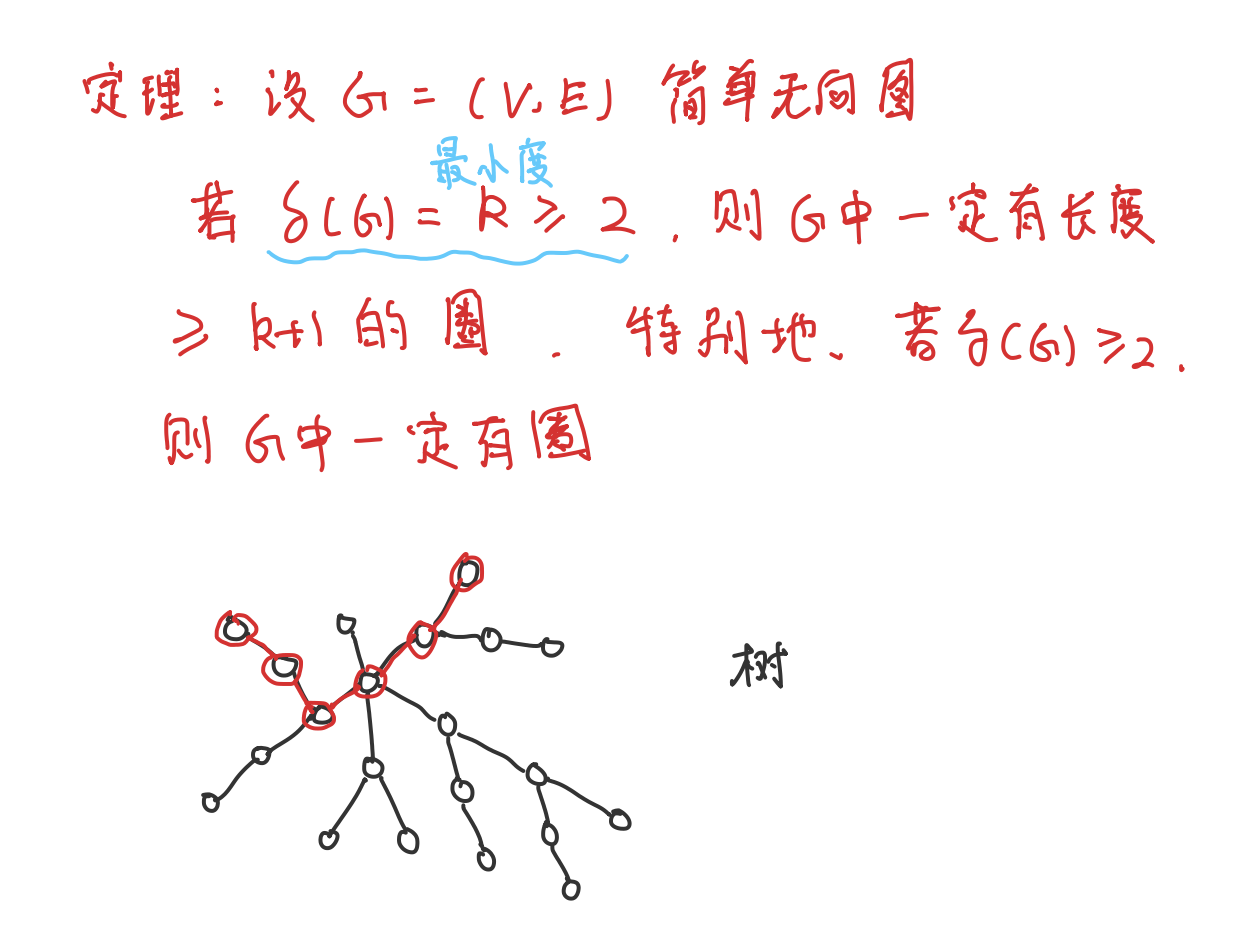 定理：设 G = (V, E) 简单无向图
最小度
若 δ(G) = k ≥ 2 , 则 G中一定有长度
≥ k+1 的圈 . 特别地、若 δ(G) ≥ 2 .
则 G中一定有圈
树